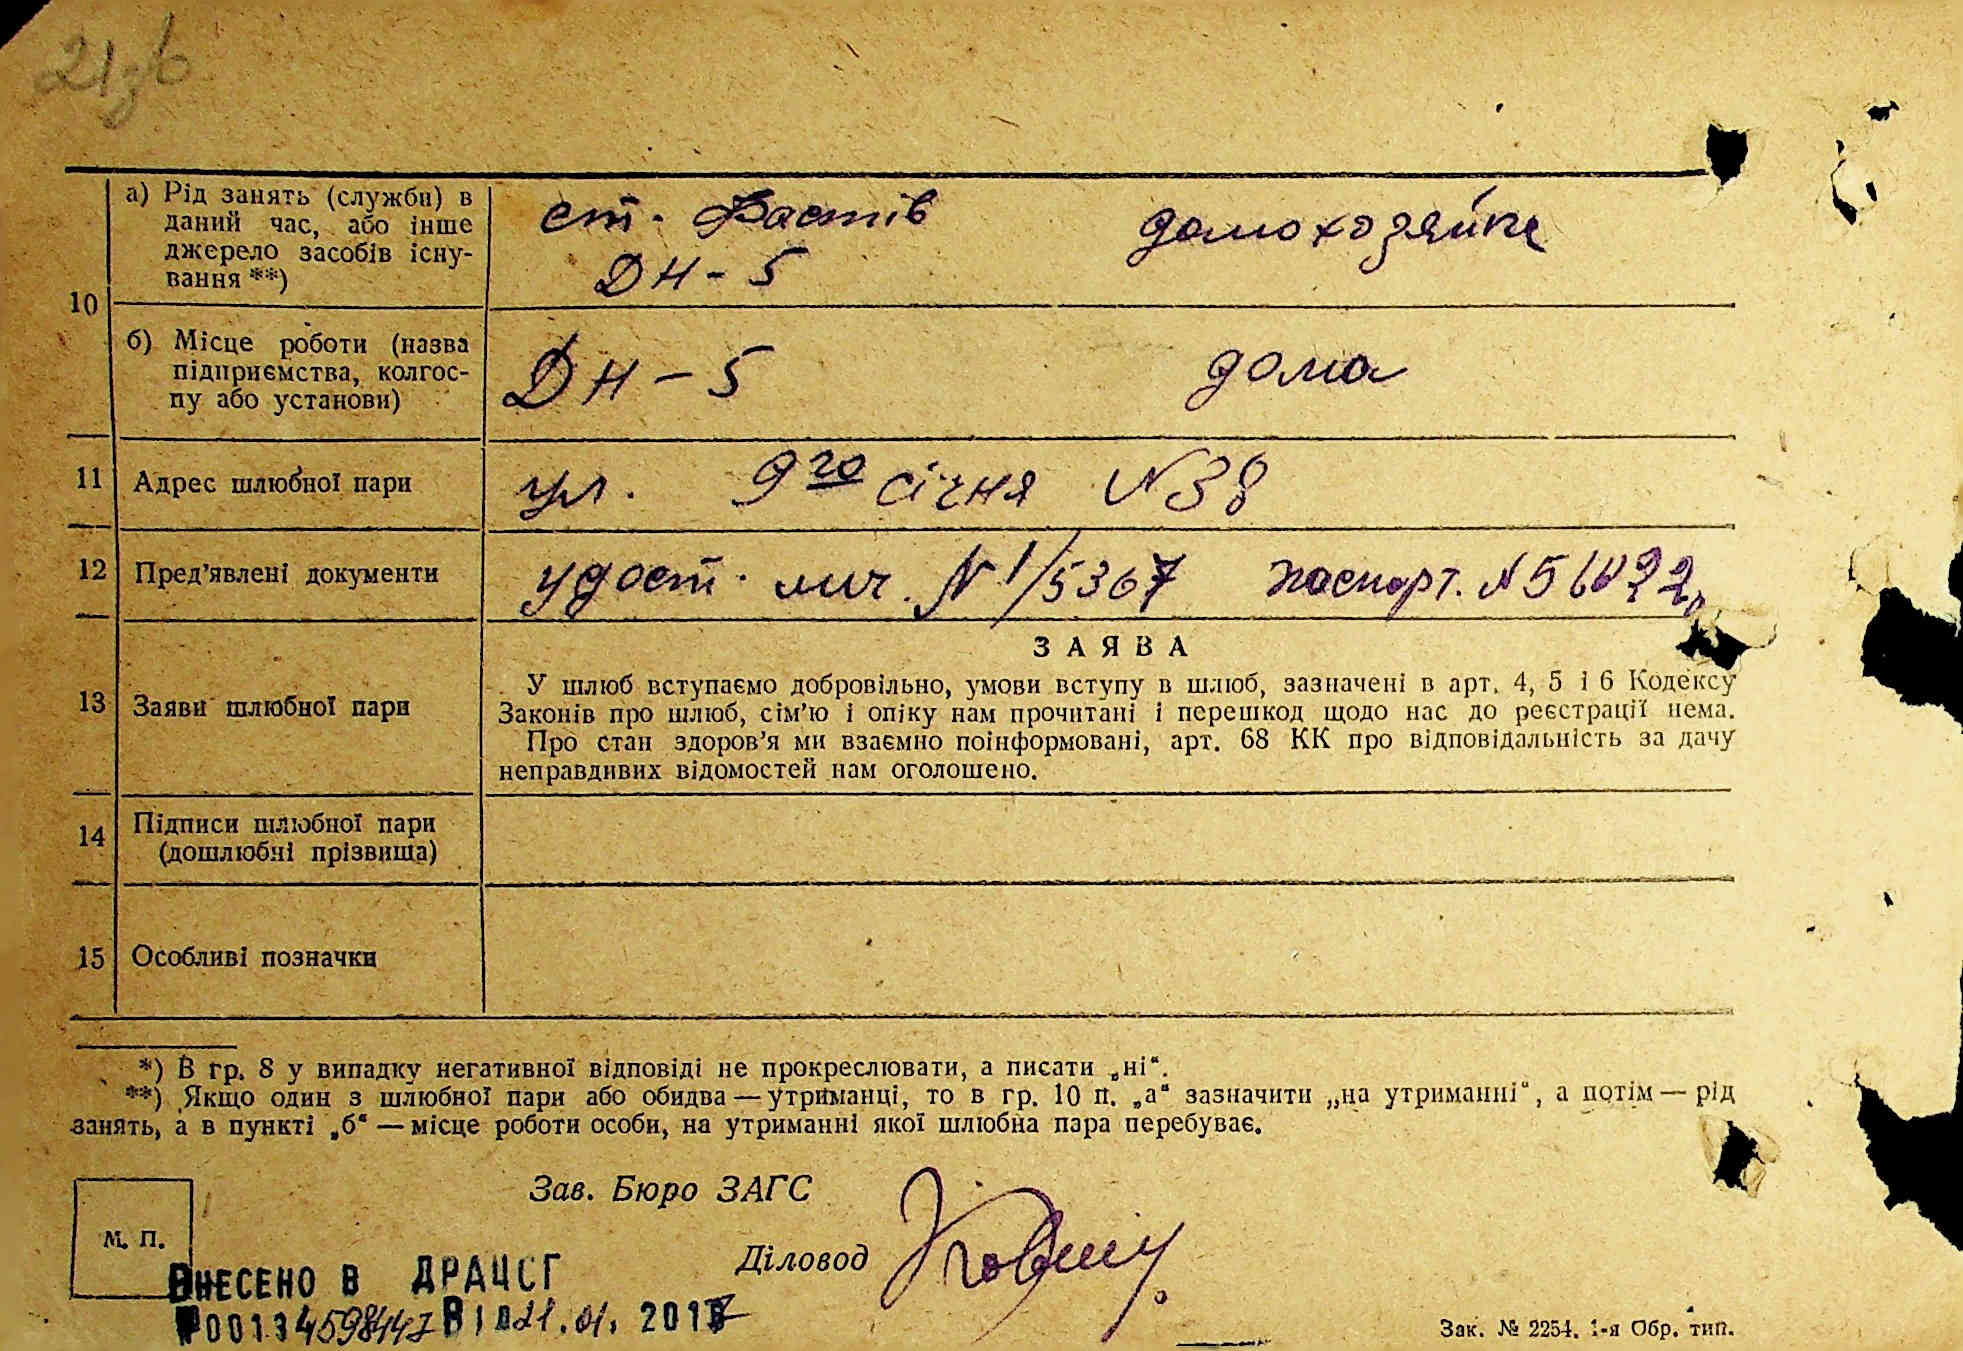 21зв
а) Рід занять (служби) в
даний час, або інше
джерело засобів існу-
вання **)
ст. Фастів
ДН - 5
домохозяйка
10
б) Місце роботи (назва
підприємства, колгос-
пу або установи)
ДН - 5
дома
11 Адрес шлюбної пари
ул. 9го січня №38
12 Пред'явлені документи
удост. лич. № 1/5367 паспорт. №
ЗАЯВА
13 Заяви шлюбної пари
У шлюб вступаємо добровільно, умови вступу в шлюб, зазначені в арт. 4, 5 і 6 Кодексу
Законів про шлюб, сім'ю і опіку нам прочитані і перешкод щодо нас до реєстрації нема.
Про стан здоров'я ми взаємно поінформовані, арт. 68 КК про відповідальність за дачу
неправдивих відомостей нам оголошено.
14 Підписи шлюбної пари
(дошлюбні прізвища)
15 Особливі позначки
*) В гр. 8 у випадку негативної відповіді не прокреслювати, а писати „ні“.
**) Якщо один з шлюбної пари або обидва — утриманці, то в гр. 10 п. „а“ зазначити „на утриманні“, а потім — рід
занять, а в пункті „б“ — місце роботи особи, на утриманні якої шлюбна пара перебуває.
Зав. Бюро ЗАГС
М. П.
Діловод
ВНЕСЕНО В ДРАЦСГ
№00134598447 ВІД 21.01.2017
Зак. № 2254. 1-я Обр. тип.